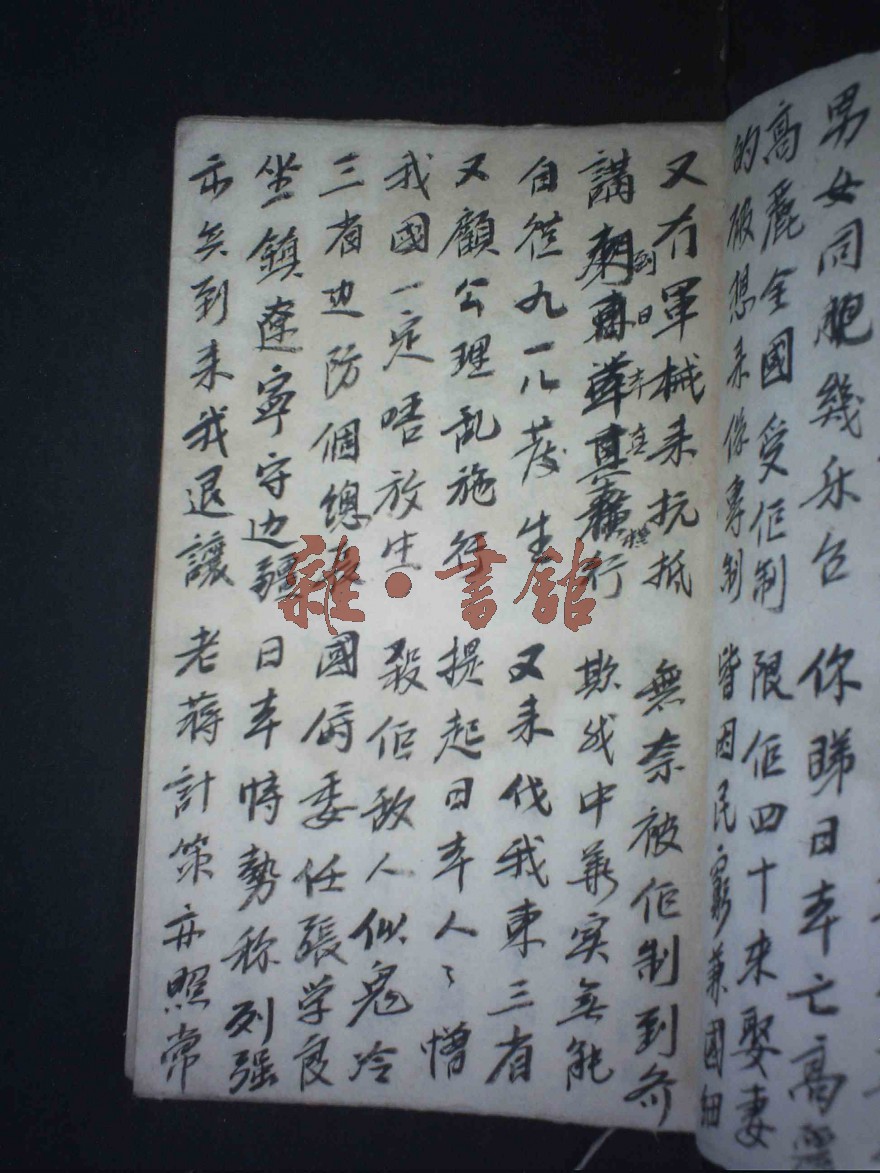 男女同胞幾 你睇日本亡高麗
高麗全國受佢制 限佢四十來娶妻
的 想来像專制 皆因民窮兼國細
又冇軍械来抗抵 無奈被佢制到
講到日本真橫行 欺我中華实無能
自從九一八发生 又来伐我東三省
又顧公理乱施行 提起日本人〻憎
我國一定唔放生 殺佢敌人似鬼冷
三省边防個總長 國府委任張学良
坐鎮遼寧守边疆 日本恃勢称列强
亦 到来我退讓 老蒋計策亦照常
雜·書舘